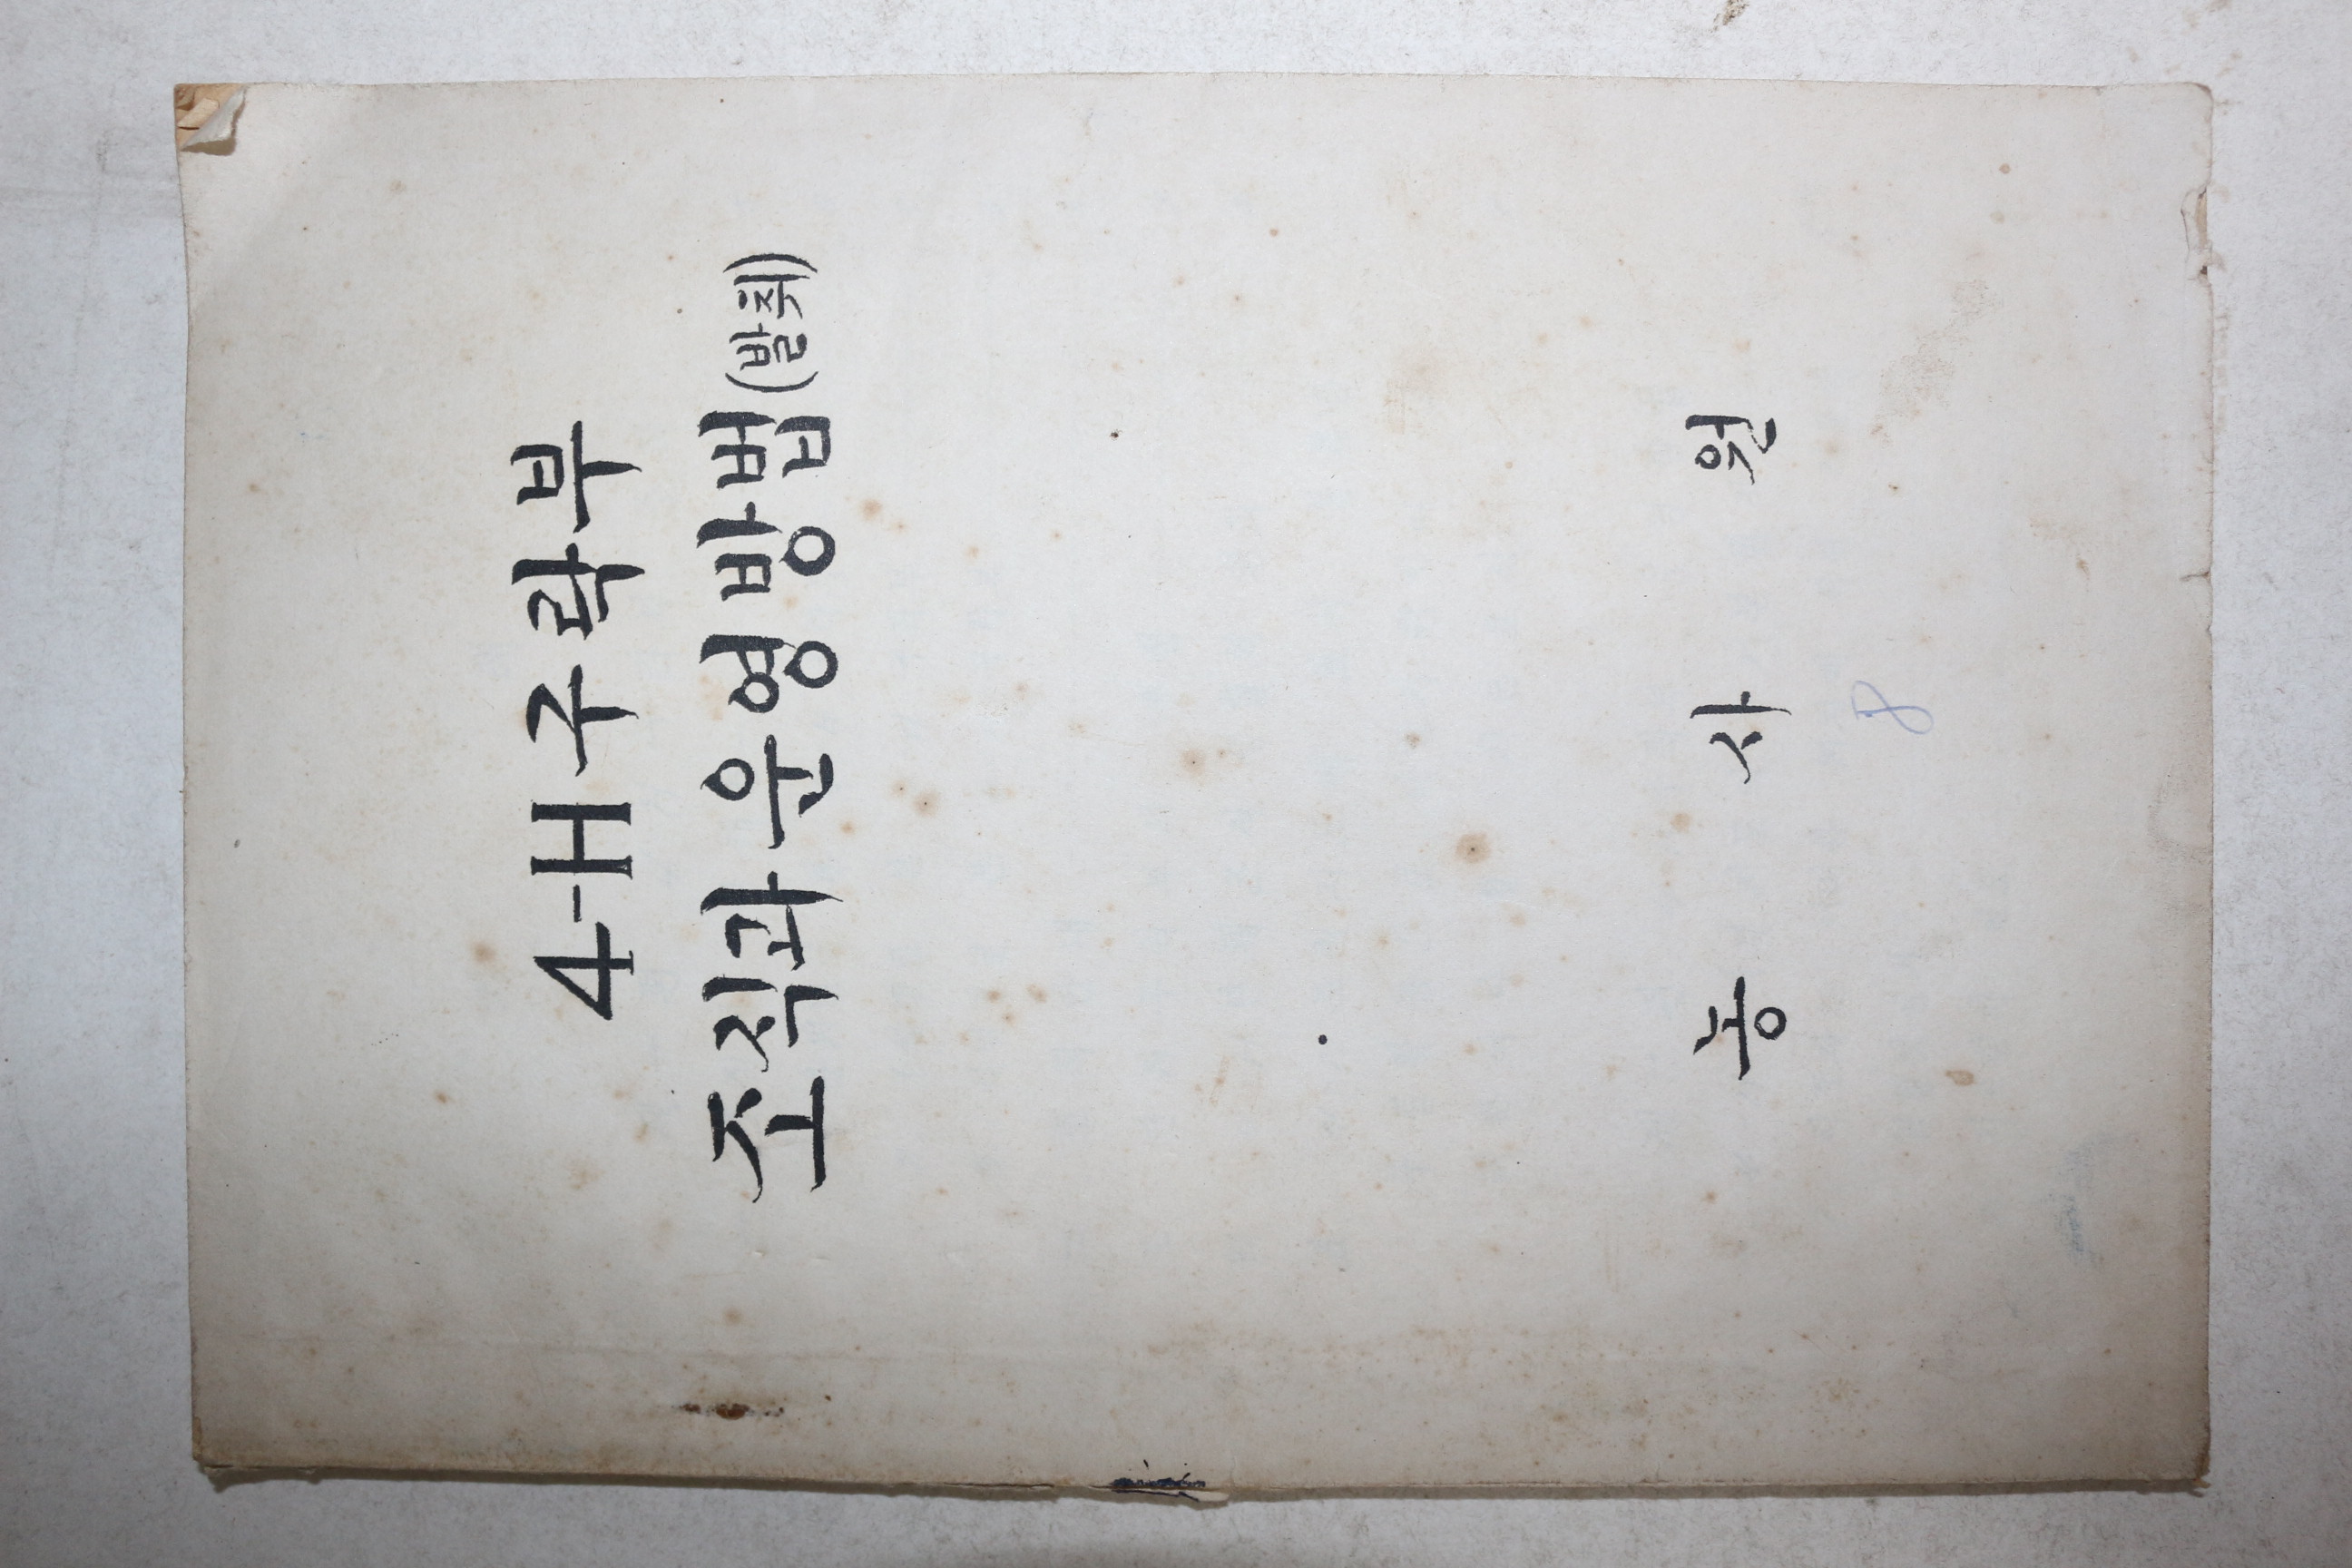 4-H구락부
조직과 운영방법(발취)
농 사 원
8